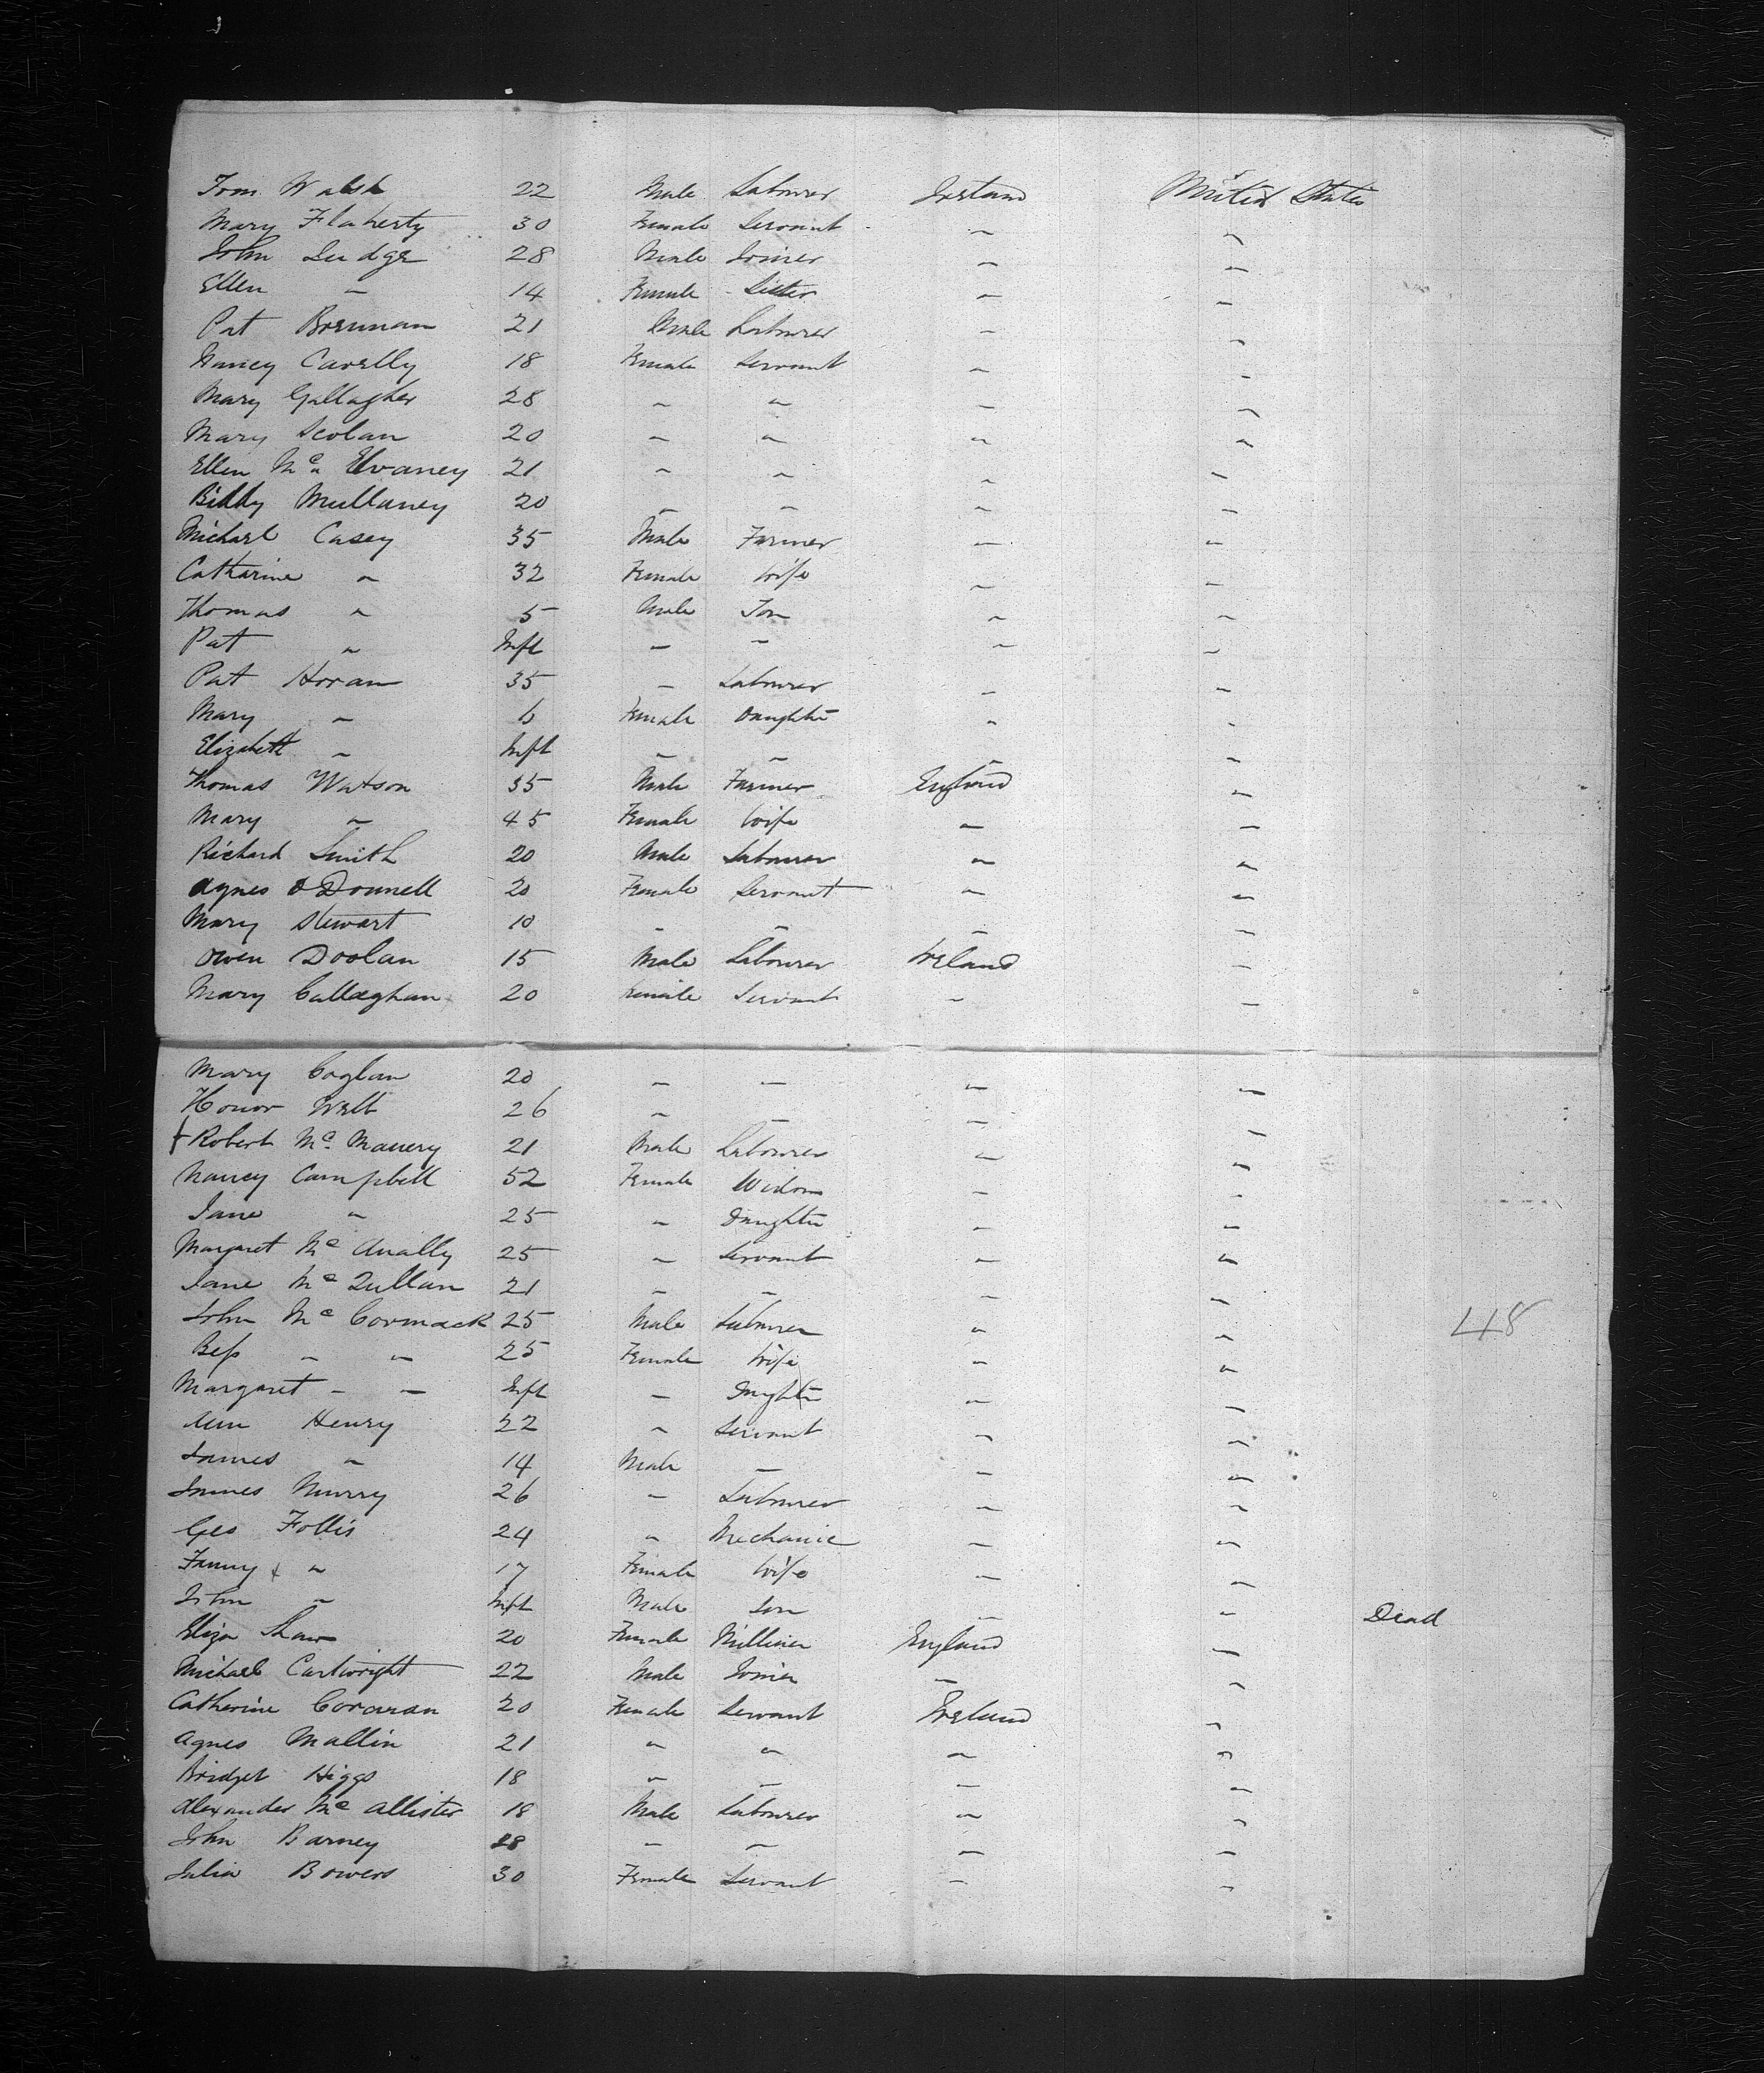 Tom Walsh 22 Male Labourer Ireland United States
Mary Flaherty 30 Female Servant " "
John Judge 28 Male Joiner " "
Ellen " 14 Female Sister " "
Pat Brennan 21 Male Labourer " "
Nancy Cavelly 18 Female Servant " "
Mary Gallagher 28 " " " "
Mary Scolan 20 " " " "
Ellen Mc Elvaney 21 " " " "
Biddy Mullaney 20 " " " "
Michael Casey 35 Male Farmer " "
Catharine " 32 Female Wife " "
Thomas " 5 Male Son " "
Pat " Inft " " " "
Pat Horan 35 " Labourer " "
Mary " 6 Female Daughter " "
Elizabeth " Inft " " " "
Thomas Watson 35 Male Farmer England "
Mary " 45 Female Wife " "
Richard Smith 20 Male Labourer " "
Agnes O Donnell 20 Female Servant " "
Mary Stewart 10 " " " "
Owen Doolan 15 Male Labourer Ireland "
Mary Callaghan 20 Female Servant " "
Mary Coglan 20 " " " "
Honor Well 26 " " " "
Robert Mc 21 Male Labourer " "
Nancy Campbell 52 Female Widow " "
Jane " 25 " Daughter " "
Margaret Mc Anally 25 " Servant " "
Jane Mc Qullan 21 " " " "
John Mc Cormack 25 Male Labourer " "
Bess " " 25 Female Wife " "
Margaret " " Inft " Daughter " "
Ann Henry 22 " Servant " "
James " 14 Male " " "
James Murry 26 " Labourer " "
Geo Follis 24 " Mechanic " "
Fanny " 17 Female Wife " "
John " Inft Male Son " " Dead
Eliza Shaw 20 Female Milliner England "
Michael Cartwright 22 Male Joiner " "
Catherine Corcoran 20 Female Servant Ireland "
Agnes Mallin 21 " " " "
Bridget Higgs 18 " " " "
Alexander Mc Allister 18 Male Labourer " "
John Barney 28 " " " "
Julia Bowers 30 Female Servant " "
48